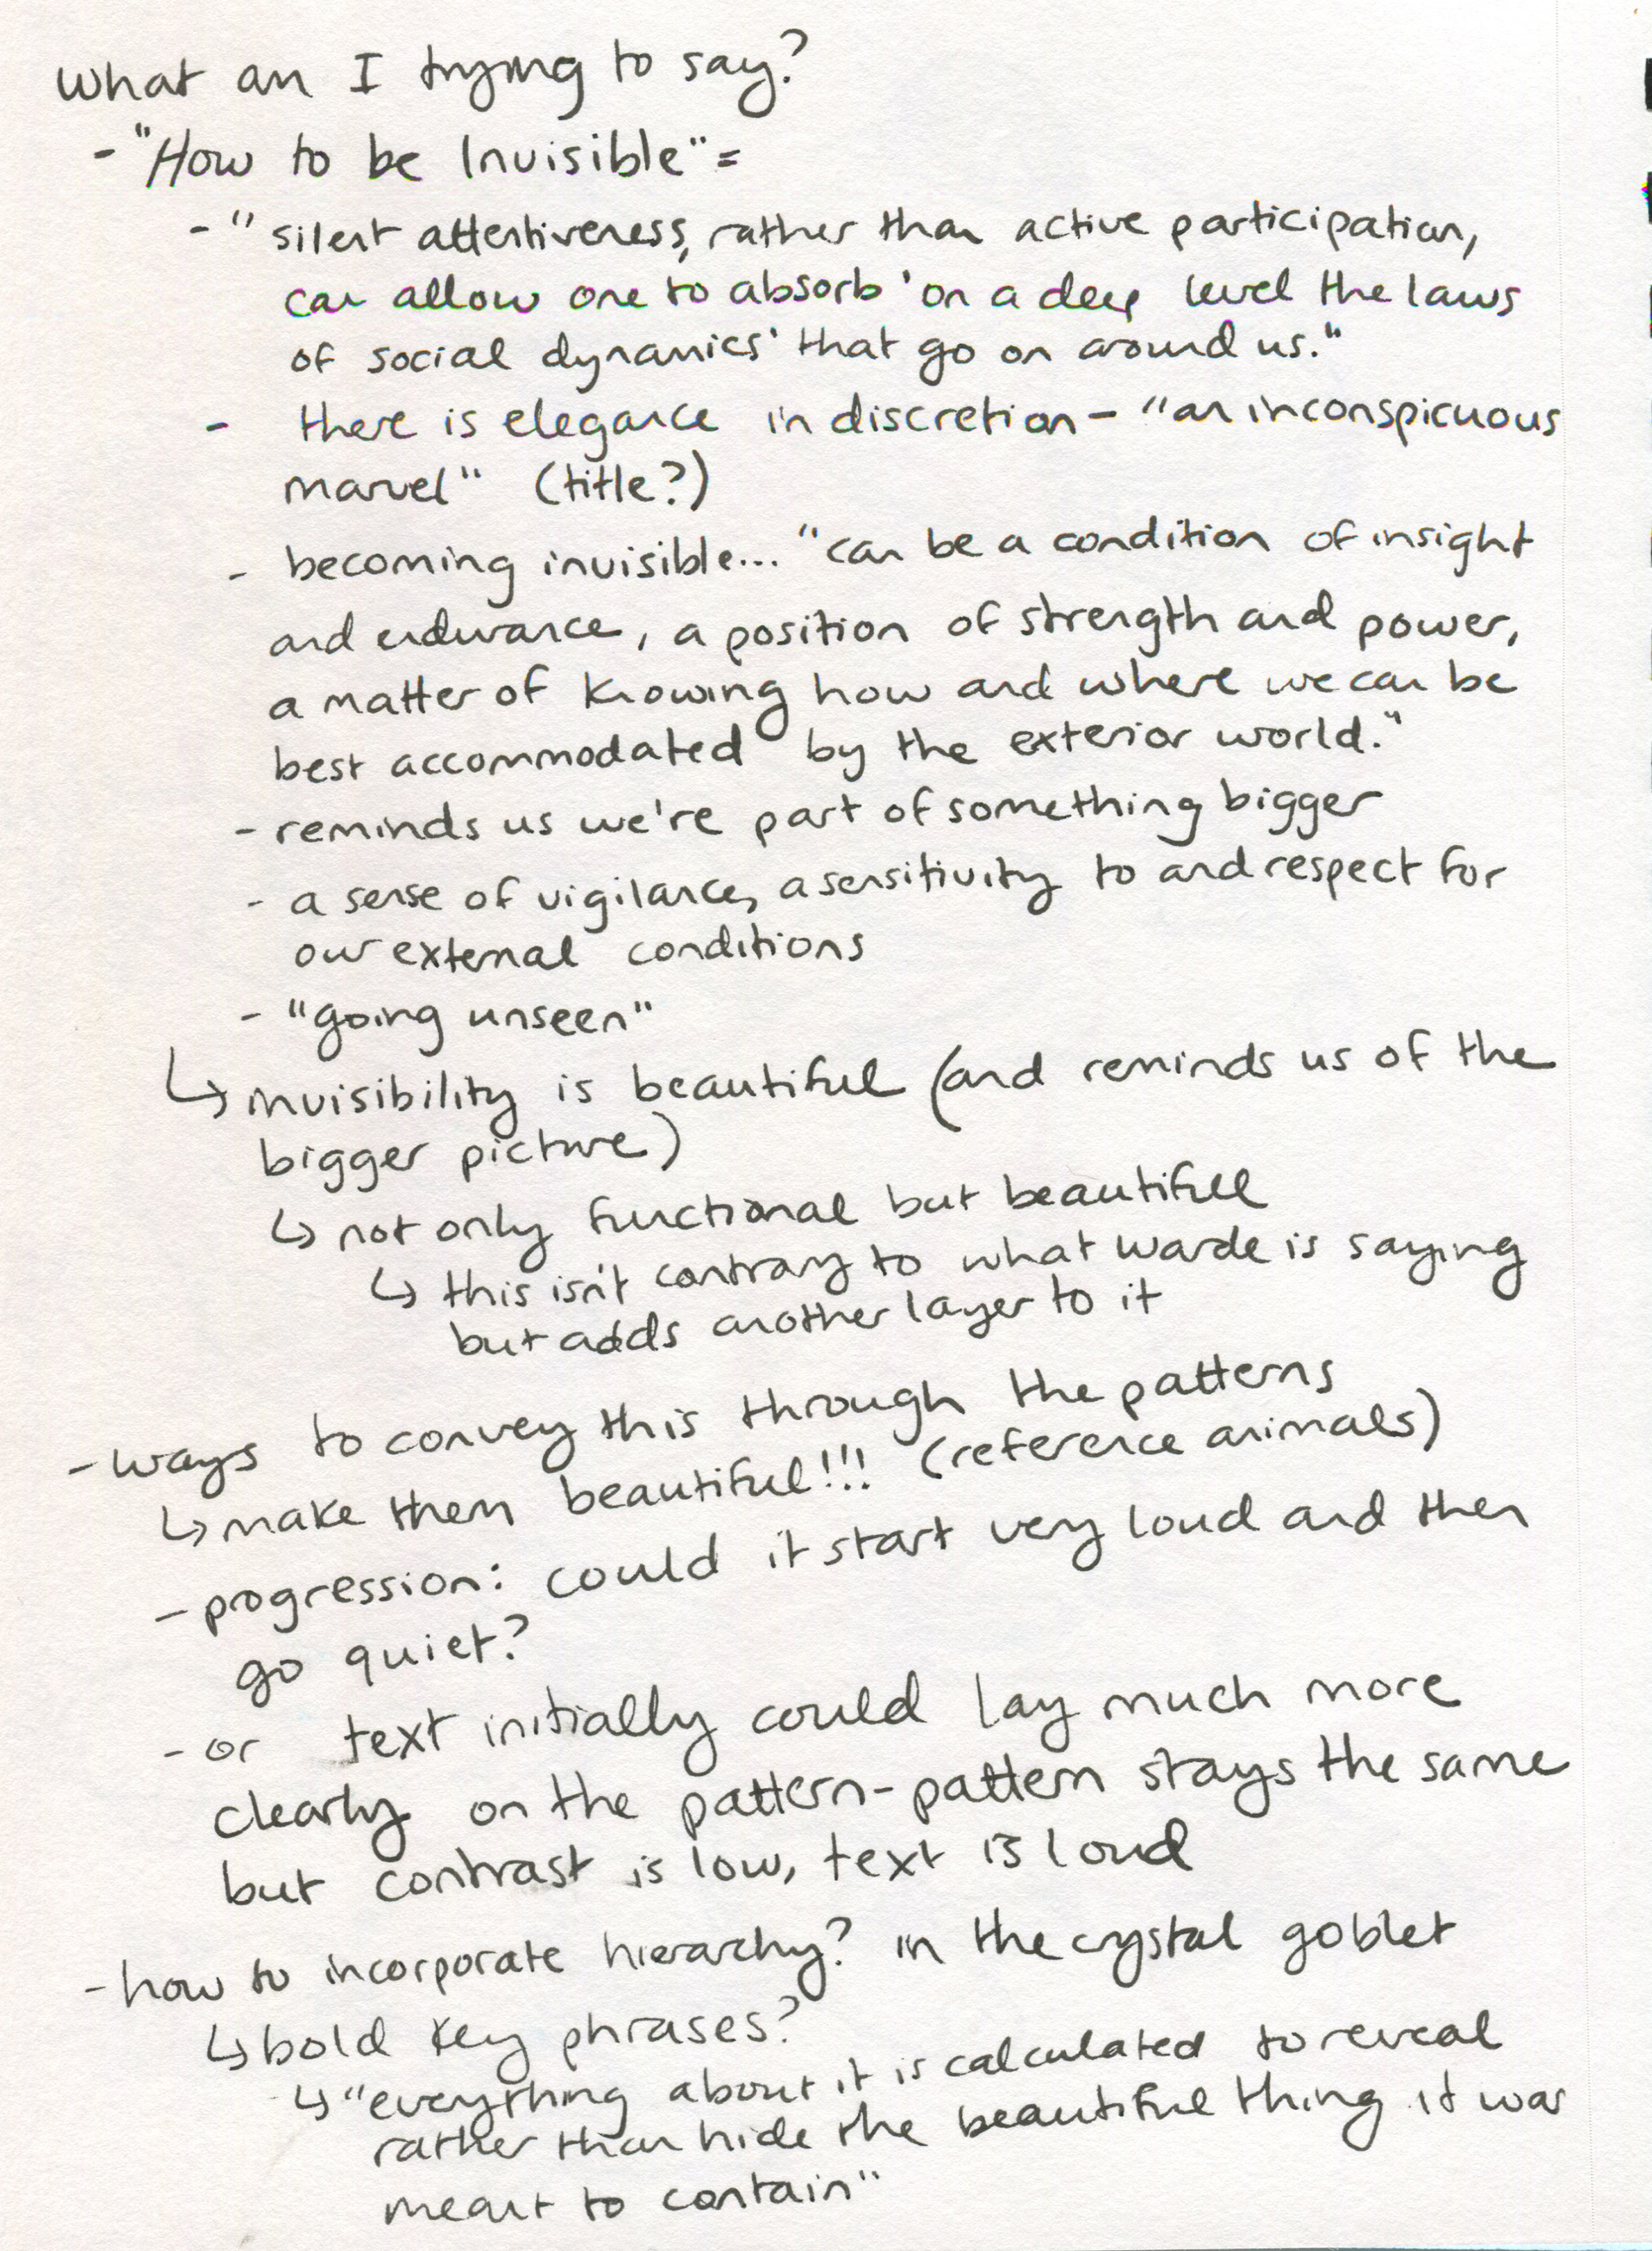 What am I trying to say?
- "How to be Invisible" =
- "silent attentiveness, rather than active participation,
can allow one to absorb 'on a deep level the laws
of social dynamics' that go on around us."
- there is elegance in discretion - "an inconspicuous
marvel" (title?)
- becoming invisible... "can be a condition of insight
and endurance, a position of strength and power,
a matter of knowing how and where we can be
best accommodated by the exterior world."
- reminds us we're part of something bigger
- a sense of vigilance, a sensitivity to and respect for
our external conditions
- "going unseen"
↳ invisibility is beautiful (and reminds us of the
bigger picture)
↳ not only functional but beautiful
↳ this isn't contrary to what Warde is saying
but adds another layer to it
- ways to convey this through the patterns
↳ make them beautiful!!! (reference animals)
- progression: could it start very loud and then
go quiet?
- or text initially could lay much more
clearly on the pattern - pattern stays the same
but contrast is low, text is loud
- how to incorporate hierarchy? in the crystal goblet
↳ bold key phrases?
↳ "everything about it is calculated to reveal
rather than hide the beautiful thing it was
meant to contain"